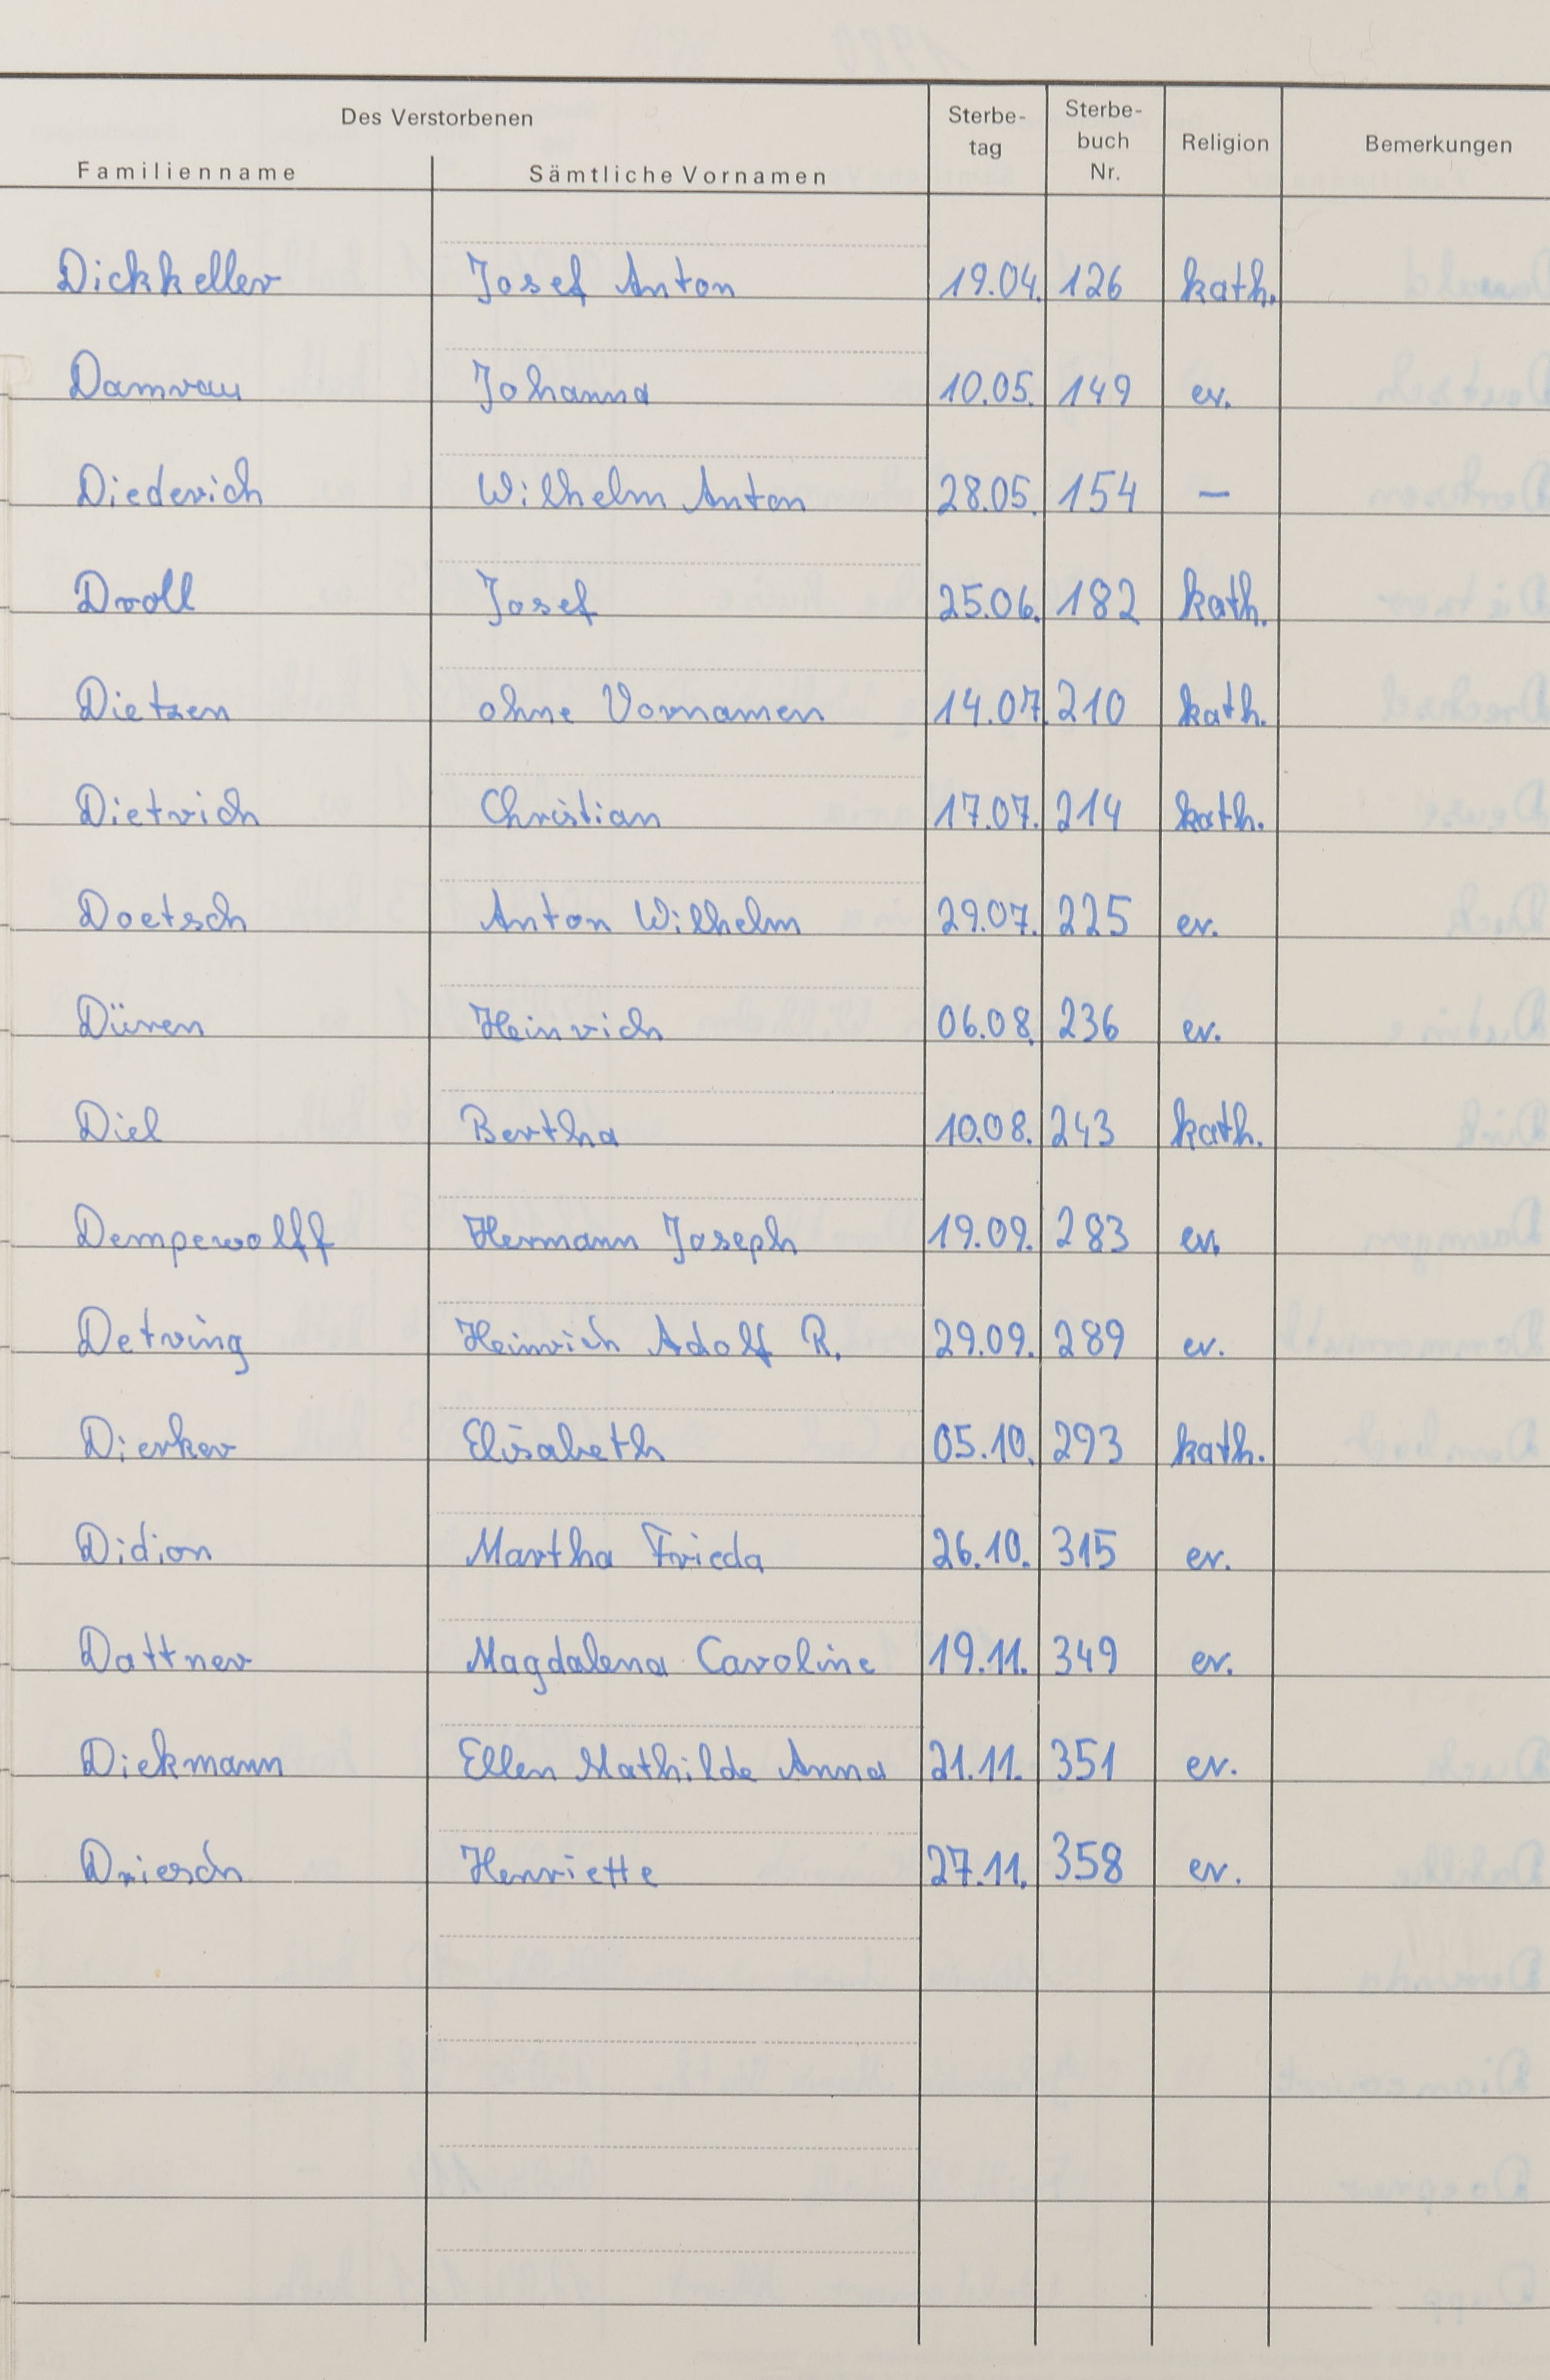 Des Verstorbenen
Familienname Sämtliche Vornamen Sterbe-tag Sterbe-buch Nr. Religion Bemerkungen
Dickkeller Josef Anton 19.04. 126 kath.
Damrau Johanna 10.05. 149 ev.
Diederich Wilhelm Anton 28.05. 154 —
Droll Josef 25.06. 182 kath.
Dietzen ohne Vornamen 14.07. 210 kath.
Dietrich Christian 17.07. 214 kath.
Doetsch Anton Wilhelm 29.07. 225 ev.
Düren Heinrich 06.08. 236 ev.
Diel Bertha 10.08. 243 kath.
Dempewolff Hermann Joseph 19.09. 283 ev.
Detring Heinrich Adolf R. 29.09. 289 ev.
Dierker Elisabeth 05.10. 293 kath.
Didion Martha Frieda 26.10. 315 ev.
Dattner Magdalena Caroline 19.11. 349 ev.
Diekmann Ellen Mathilde Anna 21.11. 351 ev.
Driesch Henriette 27.11. 358 ev.